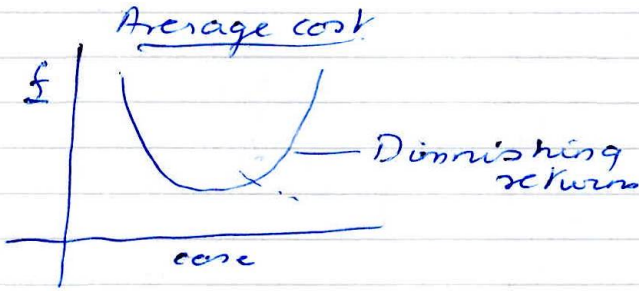 Average cost
£
Diminishing
returns